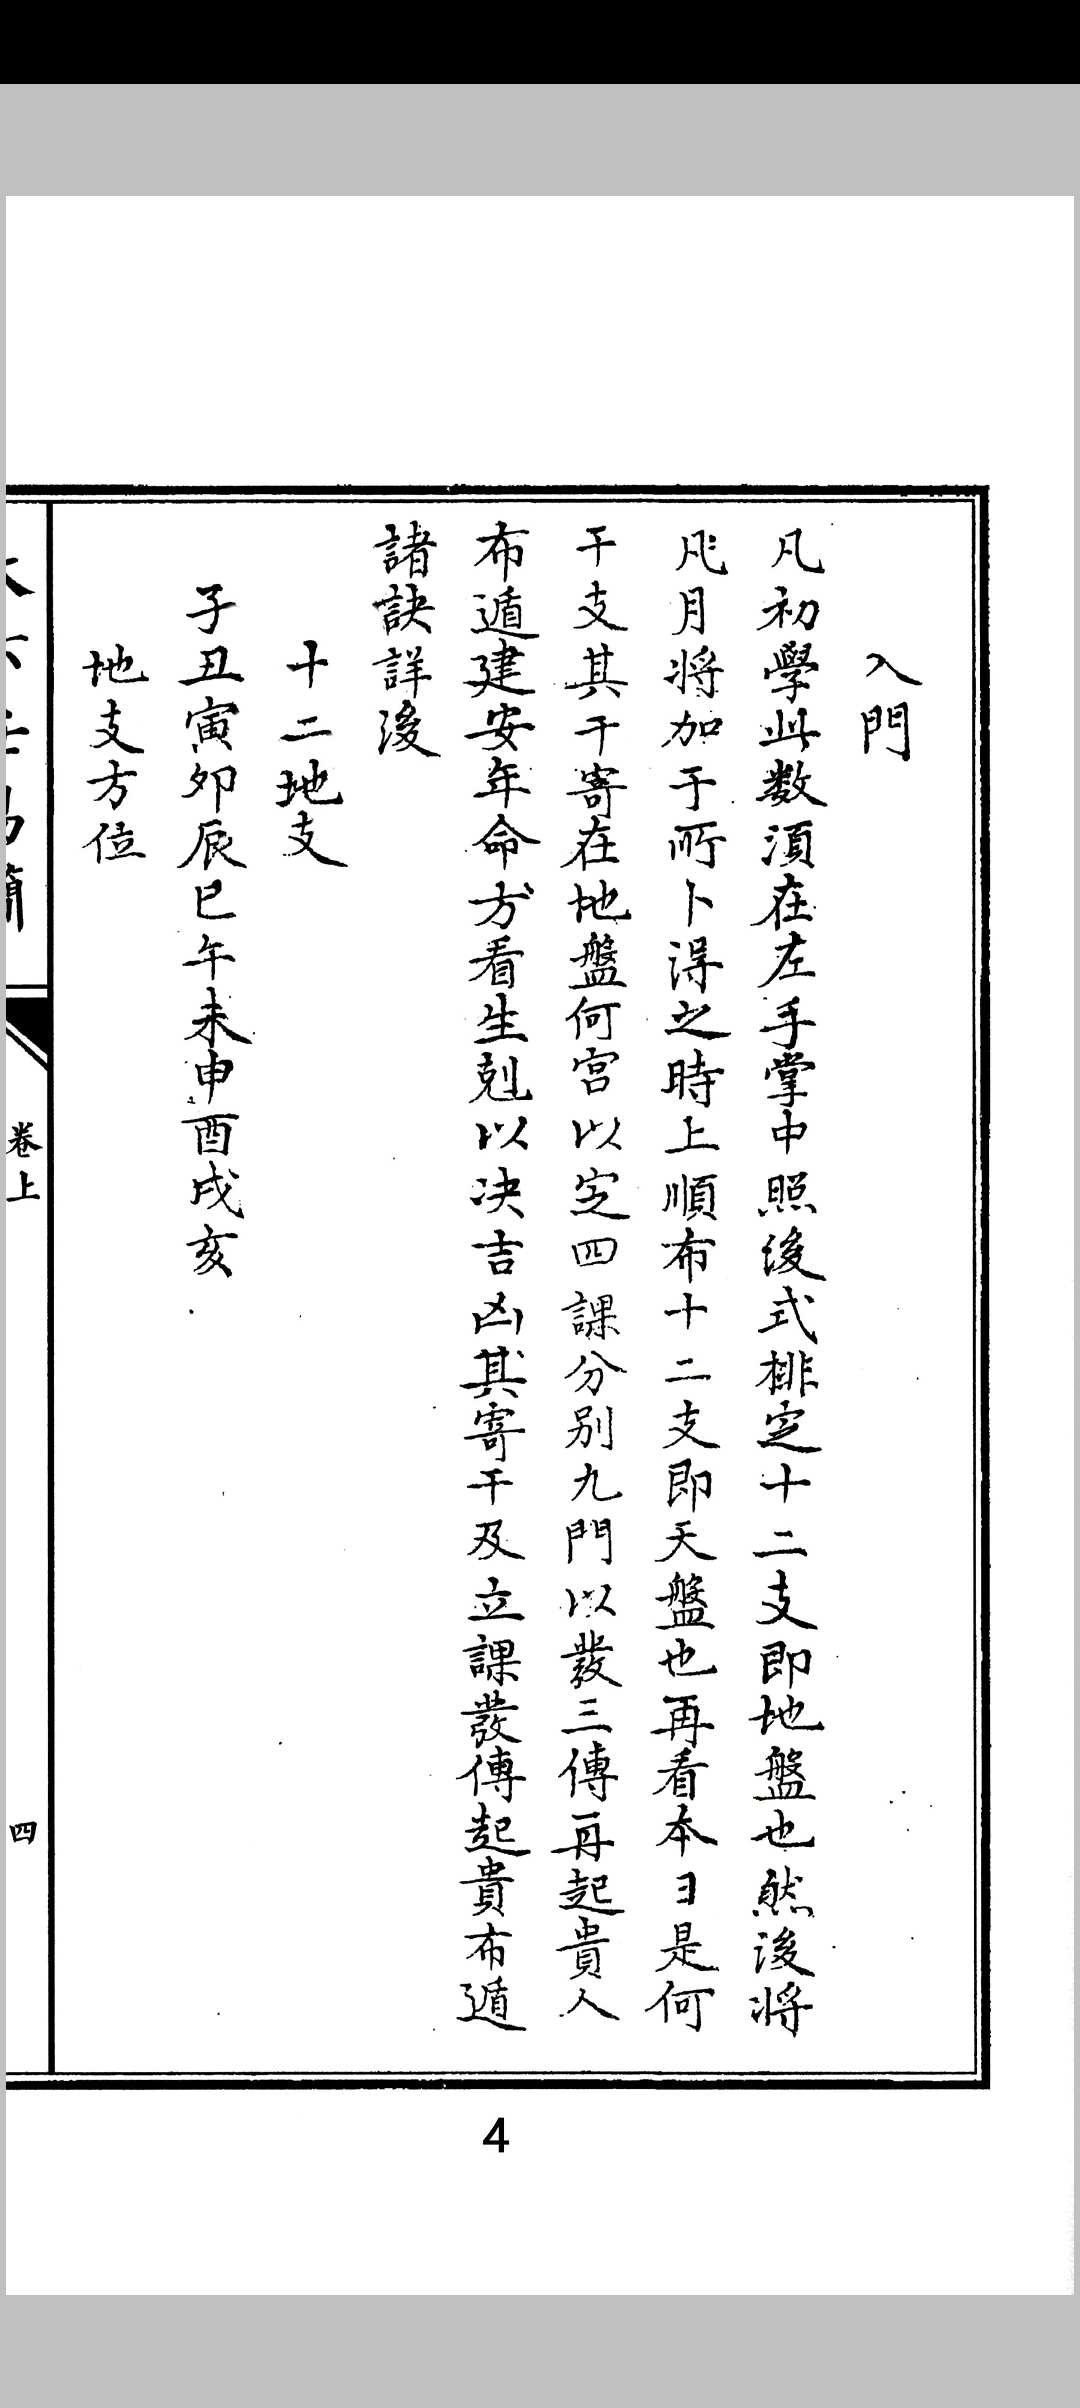 入門
凡初學此数須在左手掌中照後式排定十二支即地盤也然後将
凡月将加于所卜得之時上順布十二支即天盤也再看本日是何
干支其干寄在地盤何宮以定四課分别九門以發三傳再起貴人
布遁建安年命方看生剋以决吉凶其寄干及立課發傳起貴布遁
諸訣詳後
十二地支
子丑寅夘辰巳午未申酉戌亥
地支方位
卷上
四
4